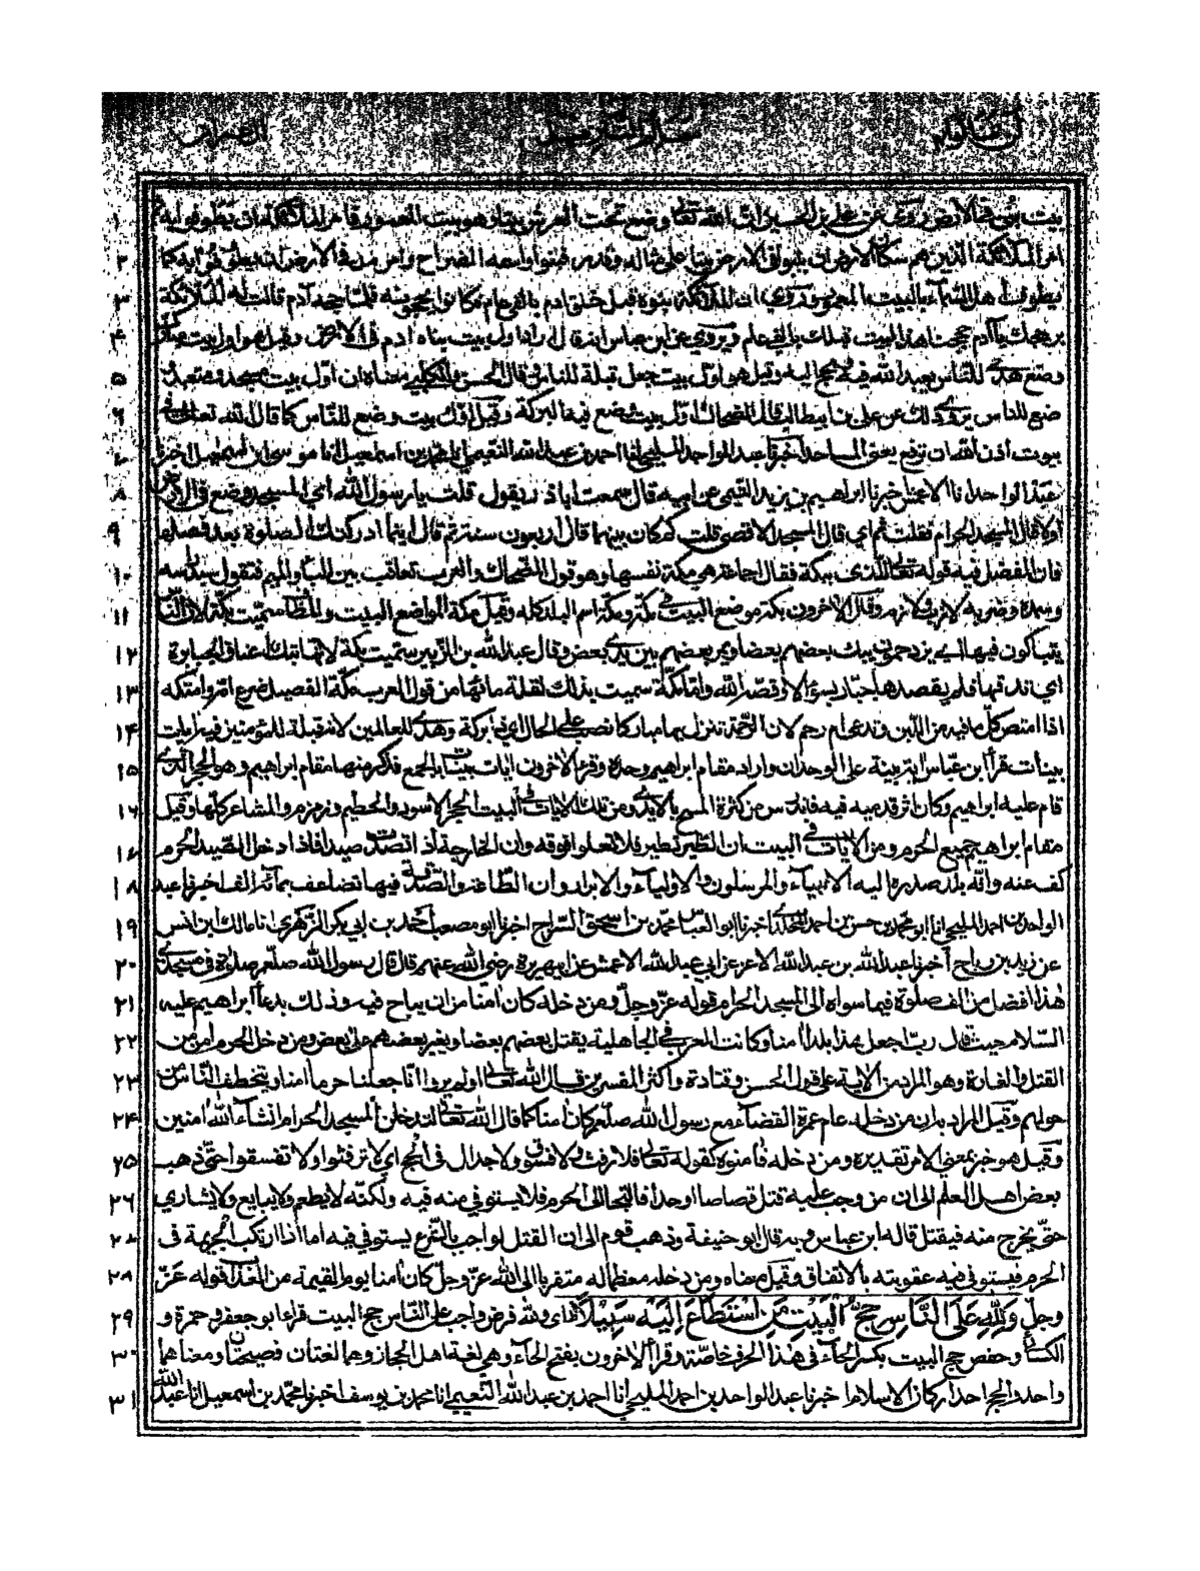 بيت بني في الارض وروي عن علي بن الحسين ان الله تعالى وضع تحت العرش بيتا وهو بيت المعمور فامر الملائكة ان يطوفوا به ثم
امر الملائكة الذين هم سكان الارض ان يبنوا في الارض بيتا على مثاله وقدره فبنوا واسمه الضراح وامر من في الارض ان يطوفوا به كما
يطوف اهل السماء بالبيت المعمور وروي ان الملائكة بنوه قبل خلق ادم بالفي عام وكانوا يحجونه فلما حجه آدم قالت له الملائكة
بر حجك يا آدم حججنا هذا البيت قبلك بالفي عام ويروي عن ابن عباس انه قال اراد اول بيت بناه ادم في الارض وقيل هو اول بيت مبارك
وضع هدى للناس يعبد الله فيه ويحج اليه وقيل هو اول بيت جعل قبلة للناس وقال الحسن والكلبي معناه ان اول بيت مسجد ومتعبد
ضع للناس يروى ذلك عن علي بن ابيطالب قال الضحاك اول بيت وضع فيه البركة وقيل اول بيت وضع للناس كما قال الله تعالى في
بيوت اذن الله ان ترفع يعني المساجد اخبرنا عبد الواحد المليحي انا احمد بن عبد الله النعيمي انا محمد بن اسمعيل انا موسى ابن اسمعيل اخبرنا
عبد الواحد انا الاعمش اخبرنا ابراهيم بن يزيد التيمي عن ابيه قال سمعت اباذر يقول قلت يا رسول الله اي المسجد وضع في الارض
اولا قال المسجد الحرام فقلت ثم اي قال المسجد الاقصى قلت كم كان بينهما قال اربعون سنة ثم قال اينما ادركتك الصلوة بعد فصله
فان الفضل فيه قوله تعالى للذي ببكة فقال جماعة هي مكة نفسها وهو قول الضحاك والعرب تعاقب بين الباء والميم فتقول سبد راسه
وسمده وضربة لازب ولازم وقال الاخرون بكة موضع البيت في مكة ومكة اسم البلد كله وقيل بكة المواضع البيت والمطاف سميت بكة لان الناس
يتباكون فيها اي يزدحمون يبك بعضهم بعضا ويمر بعضهم بين يدى بعض وقال عبد الله بن الزبير سميت بكة لانها تبك اعناق الجبابرة
اي تدقها فلم يقصدها جبار بسوء الا وقصه الله واما مكة سميت بذلك لقلة مائها من قول العرب مك الفصيل ضرع امه وامتكه
اذا امتص كل ما فيه من اللبن وتدعى ام رحم لان الرحمة تنزل بها مباركا نصب على الحال اي ذا بركة وهدى للعالمين لانه قبلة للمؤمنين فيه آيات
بينات قرأ ابن عباس اية بينة على الوحدان واراد مقام ابراهيم وحده وقرأ الاخرون ايات بينات بالجمع فذكر منها مقام ابراهيم وهو الحجر الذي
قام عليه ابراهيم وكان اثر قدميه فيه فاندرس من كثرة المسح بالايدى ومن تلك الايات في البيت الحجر الاسود والحطيم وزمزم والمشاعر كلها وقيل
مقام ابراهيم جميع الحرم ومن الايات في البيت ان الطير تطير فلا تعلوا فوقه وان الخارجة اذا قصدت صيدا فاذا دخل الصيد الحرم
كف عنه وانه بلد صدر اليه الانبياء والمرسلون والاولياء والابرار وان الطاعة والصدقة فيها تضاعف بمائة الف اخبرنا عبد
الواحد بن احمد المليحي انا ابو محمد بن حسن بن احمد المخلدى اخبرنا ابو العباس محمد بن اسحق السراج اخبرنا ابو مصعب احمد بن ابي بكر الزهري انا مالك ابن انس
عن زيد بن رباح اخبرنا عبد الله بن عبد الله الاعز عن ابي عبد الله الاعمش عن ابي هريرة رضي الله عنهم قال قال رسول الله صلعم صلوة في مسجدي
هذا افضل من الف صلوة فيما سواه الا المسجد الحرام قوله عز وجل ومن دخله كان امنا من ان يباح فيه وذلك بدعاء ابراهيم عليه
السلام حيث قال رب اجعل هذا بلدا امنا وكانت العرب في الجاهلية يقتل بعضهم بعضا ويغير بعضهم على بعض ومن دخل الحرم امن من
القتل والغارة وهو المراد من الاية على قول الحسن وقتادة واكثر المفسرين قال الله تعالى اولم يروا انا جعلنا حرما امنا ويتخطف الناس من
حولهم وقيل المراد به ان من دخله عام عمرة القضاء مع رسول الله صلعم كان امنا كما قال الله تعالى لتدخلن المسجد الحرام انشاء الله امنين
وقيل هو خبر بمعنى الامر تقديره ومن دخله فامنوه كقوله تعالى فلا رفث ولا فسوق ولا جدال في الحج اي لا ترفثوا ولا تفسقوا حتى ذهب
بعض اهل العلم الى ان من وجب عليه قتل قصاصا او حدا فالتجا الى الحرم فلا يستوفي منه فيه ولكنه لا يطعم ولا يبايع ولا يشاري
حتى يخرج منه فيقتل قاله ابن عباس وبه قال ابو حنيفة وذهب قوم الى ان القتل لو اجب بالشرع يستوفي فيه اما اذا ارتكب الجريمة في
الحرم فيستوفي فيه عقوبته بالاتفاق وقيل معناه ومن دخله معظما له متقربا الى الله عز وجل كان امنا يوم القيمة من العذاب قوله عز
وجل وَلِلّٰهِ عَلَى النَّاسِ حِجُّ الْبَيْتِ مَنِ اسْتَطَاعَ اِلَيْهِ سَبِيْلًا اى ولله فرض واجب على الناس حج البيت قرأ ابو جعفر وحمزة و
الكسائي وحفص حج البيت بكسر الحاء في هذا الحرف خاصة وقرأ الاخرون بفتح الحاء وهي لغة اهل الحجاز وهما لغتان فصيحتان ومعناهما
واحد والحج احد اركان الاسلام اخبرنا عبد الواحد بن احمد المليحي انا احمد بن عبد الله النعيمي انا محمد بن يوسف اخبرنا محمد بن اسمعيل انا عبد الله